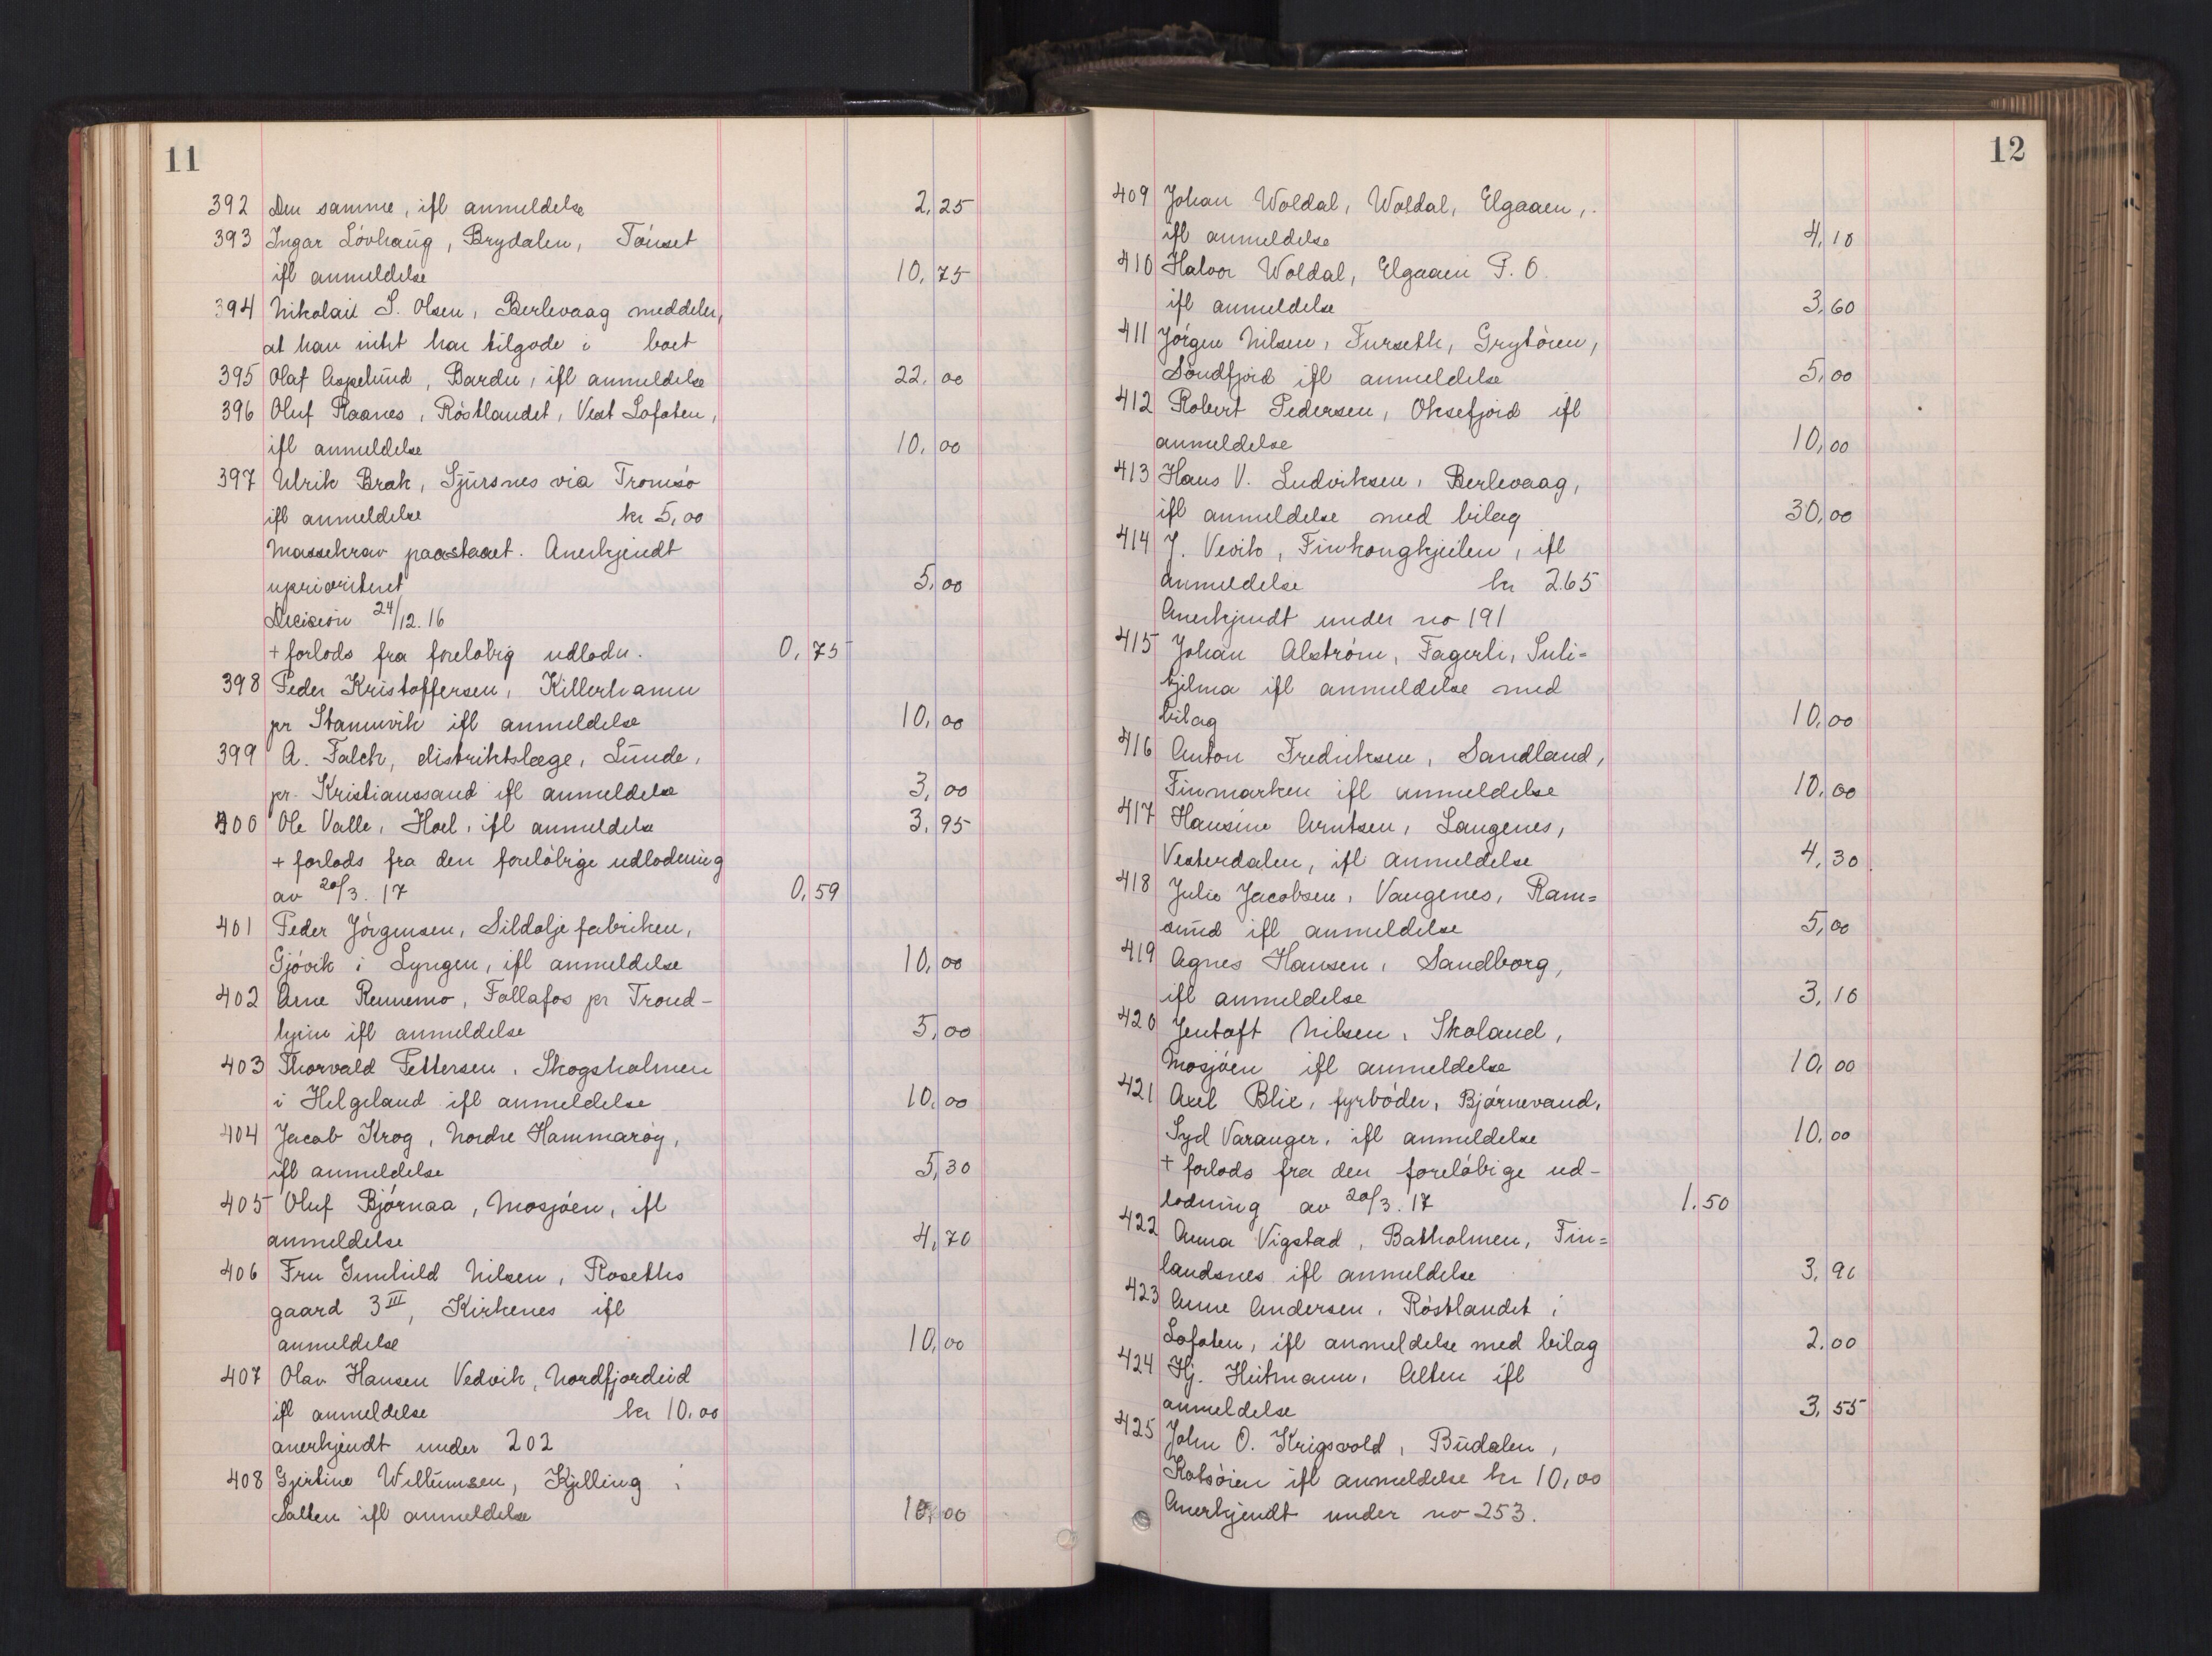 11
392 Den samme, ifl anmeldelse 2,25
393 Ingar Lóvhaug, Brydalen, Tónset
ifl anmeldelse 10,75
394 Nikolai S. Olsen, Berlevaag meddeler,
at han intet har tilgode i boet
395 Olaf Aspelund, Bardu, ifl anmeldelse 22,00
396 Oluf Raanes, Róstlandet, Vest Lofoten,
ifl anmeldelse 10,00
397 Ulrik Brak, Sjursnes via Tromsó
ifl anmeldelse kr 5,00
Massekrav paastaaet. Anerkjendt
uprioriteret 5,00
Decision 24/12.16
+ forlods fra forelóbig udlodn. 0,75
398 Peder Kristoffersen, Killerhamn
pr Stamnvik ifl anmeldelse 10,00
399 A. Falch, distriktslæge, Lunde,
pr. Kristianssand ifl anmeldelse 3,00
400 Ole Valle, Hoel, ifl anmeldelse 3,95
+ forlods fra den forelóbige udlodning
av 20/3.17 0,59
401 Peder Jórgensen, Sildoljefabriken,
Gjóvik i Lyngen, ifl anmeldelse 10,00
402 Arne Rennemo, Follafos pr Trond-
hjem ifl anmeldelse 5,00
403 Thorvald Pettersen, Skogsholmen
i Helgeland ifl anmeldelse 10,00
404 Jacob Krog, Nordre Hammaróy,
ifl anmeldelse 5,30
405 Oluf Bjórnaa, Mosjóen, ifl
anmeldelse 4,70
406 Fru Gunhild Nilsen, Roseths
gaard 3 III, Kirkenes ifl
anmeldelse 10,00
407 Olav Hansen Vedvik, Nordfjordeid
ifl anmeldelse kr 10,00
anerkjendt under 202
408 Gjertine Willumsen, Kjelling i
Salten ifl anmeldelse 10,00
12
409 Johan Woldal, Woldal, Elgaaen,
ifl anmeldelse 4,10
410 Halvor Woldal, Elgaaen P.O.
ifl anmeldelse 3,60
411 Jórgen Nilsen, Furseth, Grytóren,
Sóndfjord ifl anmeldelse 5,00
412 Robert Pedersen, Oksefjord ifl
anmeldelse 10,00
413 Hans V. Ludviksen, Berlevaag,
ifl anmeldelse med bilag 30,00
414 J. Vevik, Finkongkjeilen, ifl
anmeldelse kr 2.65
Anerkjendt under no 191
415 Johan Alstróm, Fagerli, Suli=
tjelma ifl anmeldelse med
bilag 10,00
416 Anton Fredriksen, Sandland,
Finmarken ifl anmeldelse 10,00
417 Hansine Arntsen, Langenes,
Vesterdalen, ifl anmeldelse 4,30
418 Julie Jacobsen, Vaugenes, Ram=
sund ifl anmeldelse 5,00
419 Agnes Hansen, Sandborg,
ifl anmeldelse 3,10
420 Jentoft Nilsen, Skoland,
Mosjóen ifl anmeldelse 10,00
421 Axel Blie, fyrbóder, Bjórnevand,
Syd Varanger, ifl anmeldelse 10,00
+ forlods fra den forelóbige ud-
lodning av 20/3.17 1.50
422 Anna Vigstad, Batholmen, Fin=
landsnes ifl anmeldelse 3,90
423 Anne Andersen, Róstlandet i
Lofoten, ifl anmeldelse med bilag 2.00
424 Hj. Heitmann, Alten ifl
anmeldelse 3,55
425 John O. Krigsvold, Budalen,
Kotsóien ifl anmeldelse kr 10,00
Anerkjendt under no 253.